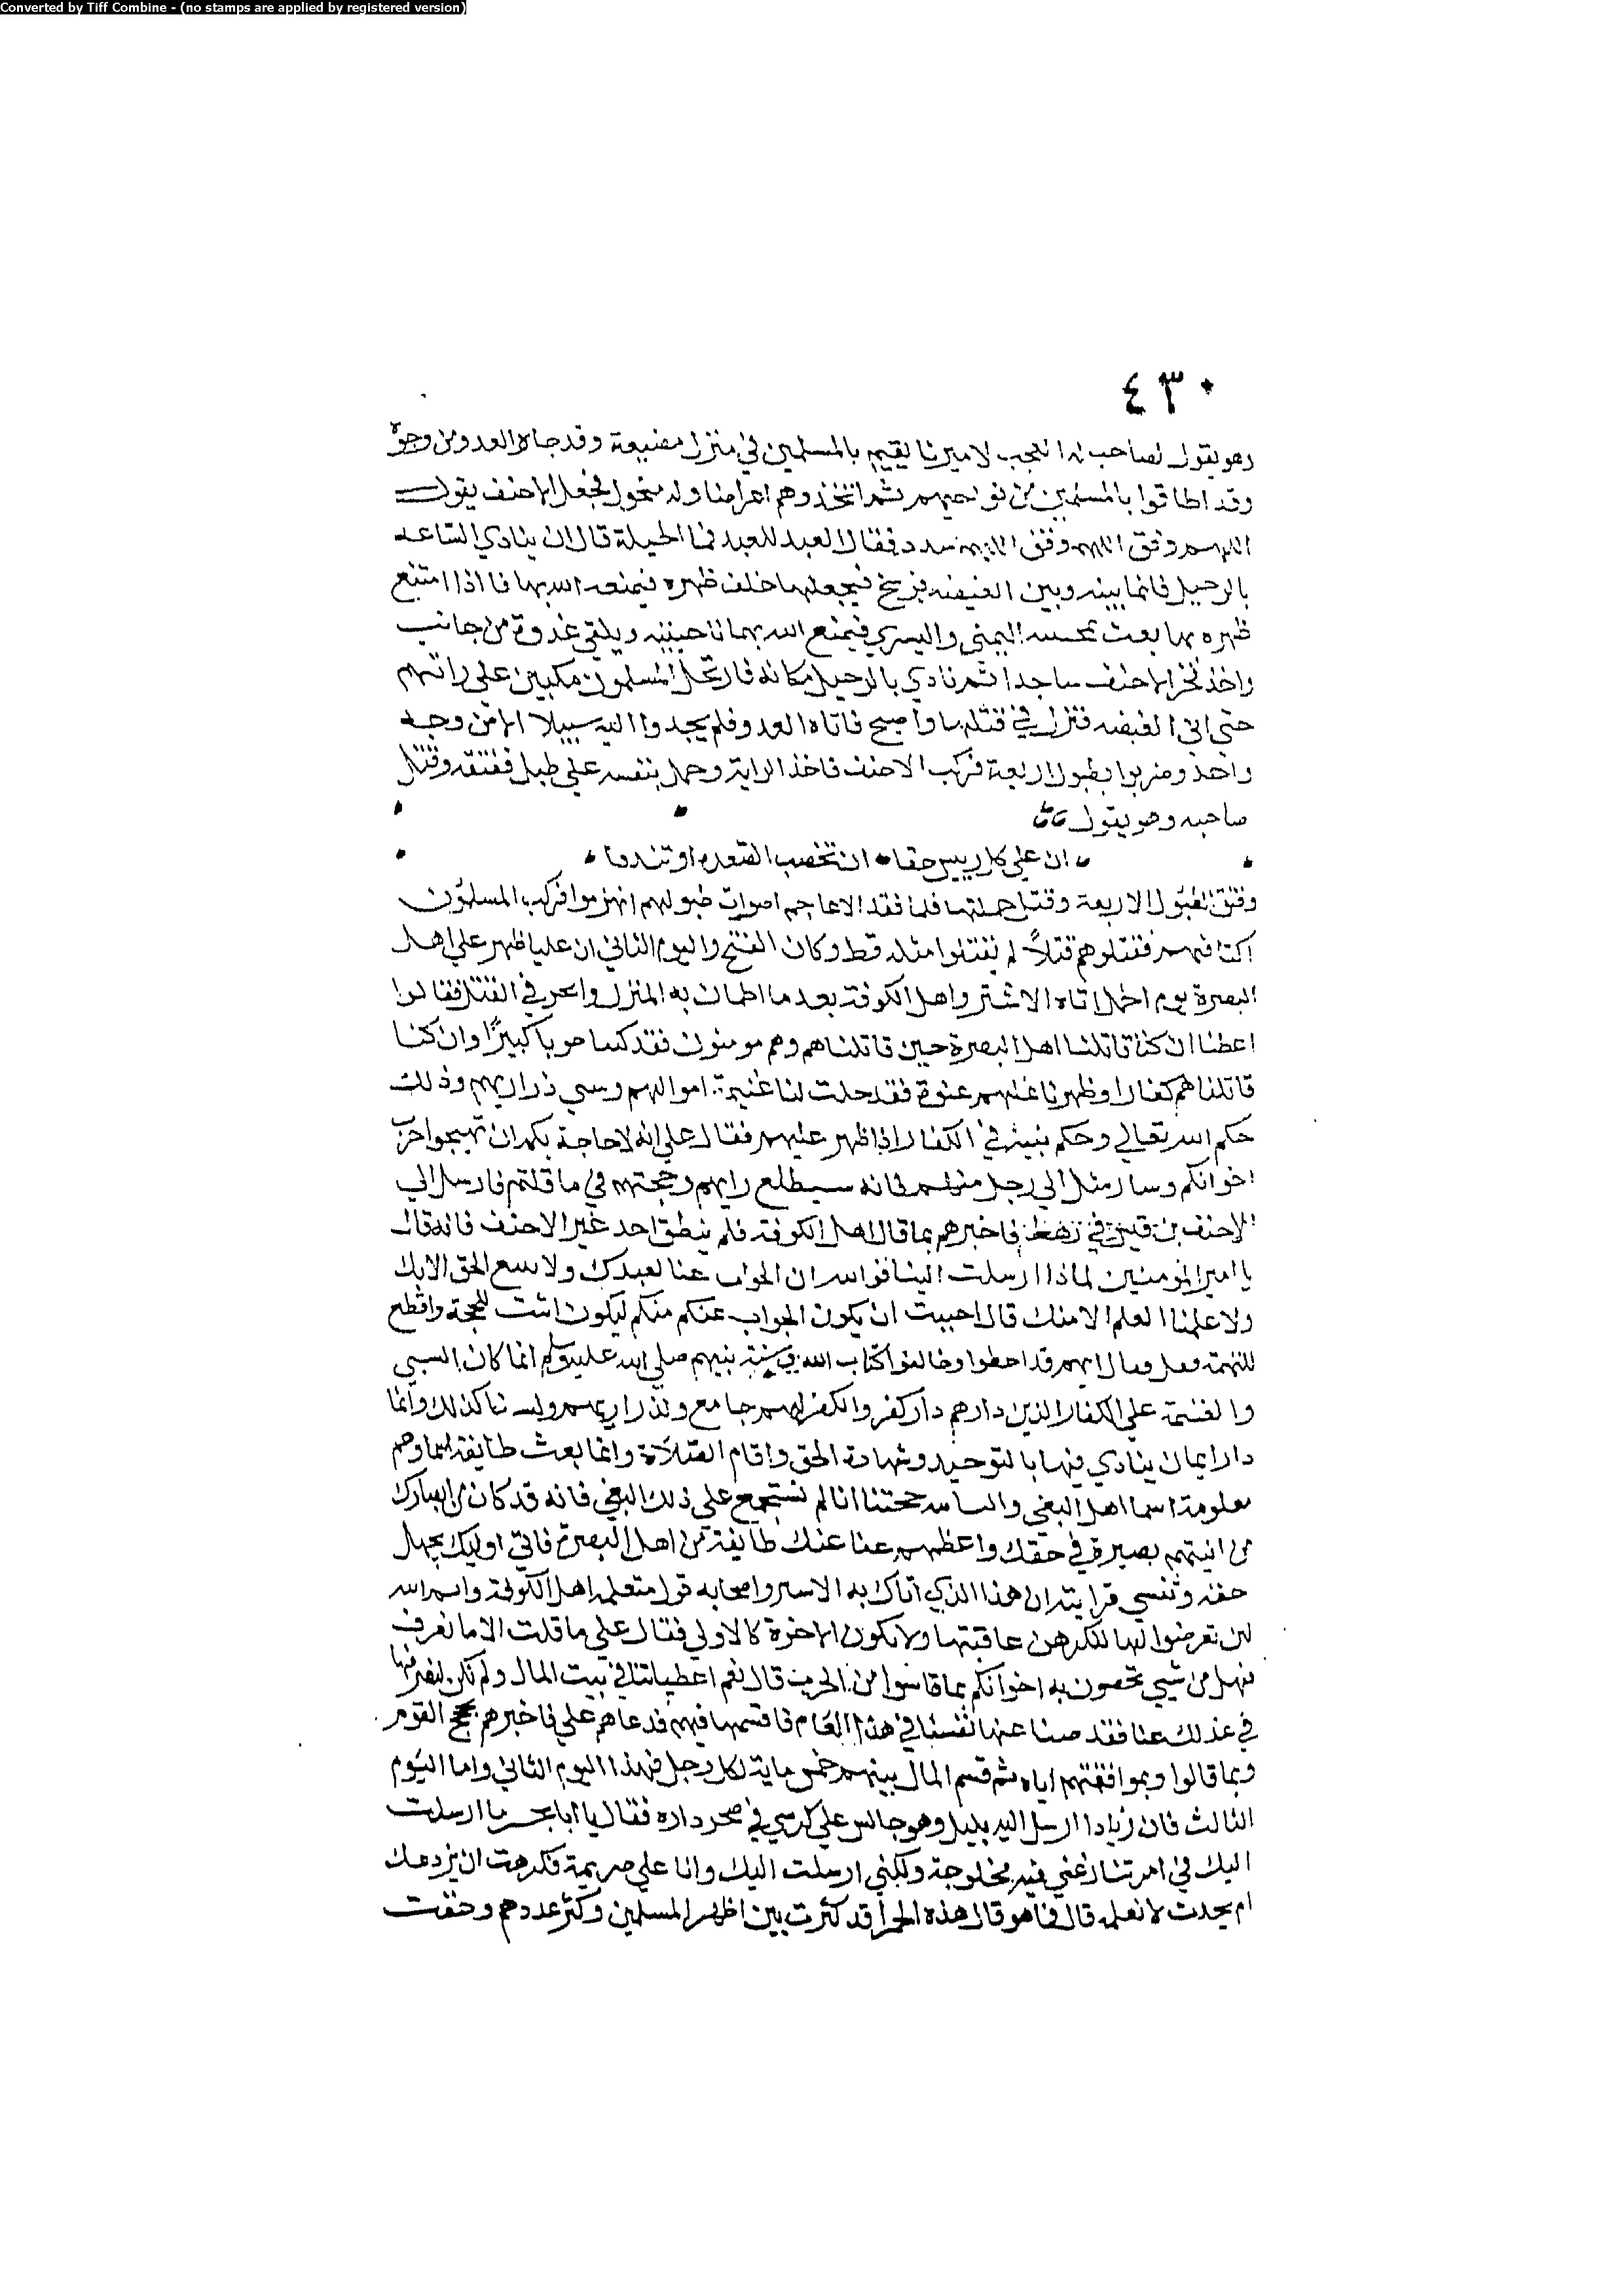 Converted by Tiff Combine - (no stamps are applied by registered version)
٤٣٠
وهو يقول لصاحبه العجب لاميرنا يقيم بالمسلمين في منزل مضيعة وقد جاه العدو من وجوه
وقد اطافوا بالمسلمين من نواحيهم ثم اتخذوهم اعراضا وله متحول فجعل الاحنف يقول
اللهم وفق اللهم وفق اللهم سدد فقال العبد للعبد فما الحيلة قال ان ينادي الساعه
بالرحيل فانما بينه وبين الغيضه فرسخ فيجعلها خلف ظهره فيمنعه الله بها فاذا امتنع
ظهره بها بعث اليمني واليسري فيمنع الله بهما ناحيتيه ويلقي عدوه من جانب
واحد فخر الاحنف ساجدا ثم نادي بالرحيل مكانه فارتحل المسلمون مكبين علي راتهم
حتي اتي الغيضه فنزل في قبلها واصبح فاتاه العدو فلم يجدوا اليه سبيلا الا من وجه
واحد وضربوا بطبول اربعة فركب الاحنف فاخذ الراية وحمل بنفسه علي طبل ففتقه وقتل
صاحبه وهو يقول
ان علي كل رييس حقا ان تخضب القعده او تندقا
وفتق الطبول الاربعة وقتل حملتها فلما فقد الاعاجم اصوات طبولهم انهزموا فركب المسلمون
اكتافهم فقتلوهم قتلاً لم يقتلوا مثله قط وكان الفتح واليوم الثاني ان عليا ظهر علي اهل
البصرة يوم الجمل اتاه الاشتر واهل الكوفة بعد ما اطمان به المنزل واثخن في القتل فقالوا
اعطنا ان كنا قاتلنا اهل البصرة حين قاتلناهم وهم مومنون فقد ركبنا حوبا كبيرًا وان كنا
قاتلناهم كفارا وظهرنا عليهم عنوة فقد حلت لنا غنيمة اموالهم وسبي ذراريهم وذلك
حكم الله تعالي وحكم نبيه في الكفار اذا ظهر عليهم فقال علي انه لا حاجة بكم ان تهيجوا حرب
اخوانكم وسارسل الي رجل منهم فانه سيطلع رايهم وحجتهم في ما قلتم فارسل الي
الاحنف بن قيس في رهط فاخبرهم بما قال اهل الكوفة فلم ينطق احد غير الاحنف فانه قال
يا امير المومنين لماذا ارسلت الينا فوالله ان الجواب عنا لعبدك ولا نتبع الحق الا بك
ولا علمنا العلم الا منك قال احببت ان يكون الجواب عنكم منكم ليكون اثبت للحجة واقطع
للتهمة فقل فقال انهم قد اخطوا وخالفوا كتاب الله وسنة نبيهم صلي الله عليه وسلم انما كان السبي
والغنيمة علي الكفار الذين دارهم دار كفر والكفر لهم جامع ولذراريهم ولسنا كذلك وانما
دار ايمان ينادي فيها بالتوحيد وشهادة الحق واقام الصّلاة وانما بغت طايفة اسماوهم
معلومة اسما اهل البغي والثانيه حجتنا انا لم نستجمع علي ذلك البغي فانه قد كان من انصارك
من اثبتهم بصيرة في حقك واعظمهم غنا عنك طايفة من اهل البصرة فاي اوليك يجهل
حقه وتنسي قرابته ان هذا الذي اتاك به الاشتر واصحابه قول متعلمه اهل الكوفة وايم الله
لين تعرضوا لها لتكرهن عاقبتها ولا تكون الاخرة كالاولي فقال علي ما قلت الا ما نعرف
فهل من شيي تخصون به اخوانكم بما قاسوا من الحرب قال نعم اعطياتنا في بيت المال ولم نكن لنصرفها
في عدلك عنا فقد طبنا عنها نفسا في هذا العام فاقسمها فيهم فدعاهم علي فاخبرهم بحجج القوم
وبما قالوا وبموافقتهم اياه ثم قسم المال بينهم خمس ماية لكل رجل فهذا اليوم الثاني واما اليوم
الثالث فان زيادا ارسل اليه بليل وهو جالس علي كرسي في صحن داره فقال يا ابا بحر ما ارسلت
اليك في امر تنازعني فيه مخلوجة ولكني ارسلت اليك وانا علي صريمة فكرهت ان يزدعك
امر يحدث لا نعلمه قال فما هو قال هذه الحمرا قد كثرت بين اظهر المسلمين وكثر عددهم وخفت